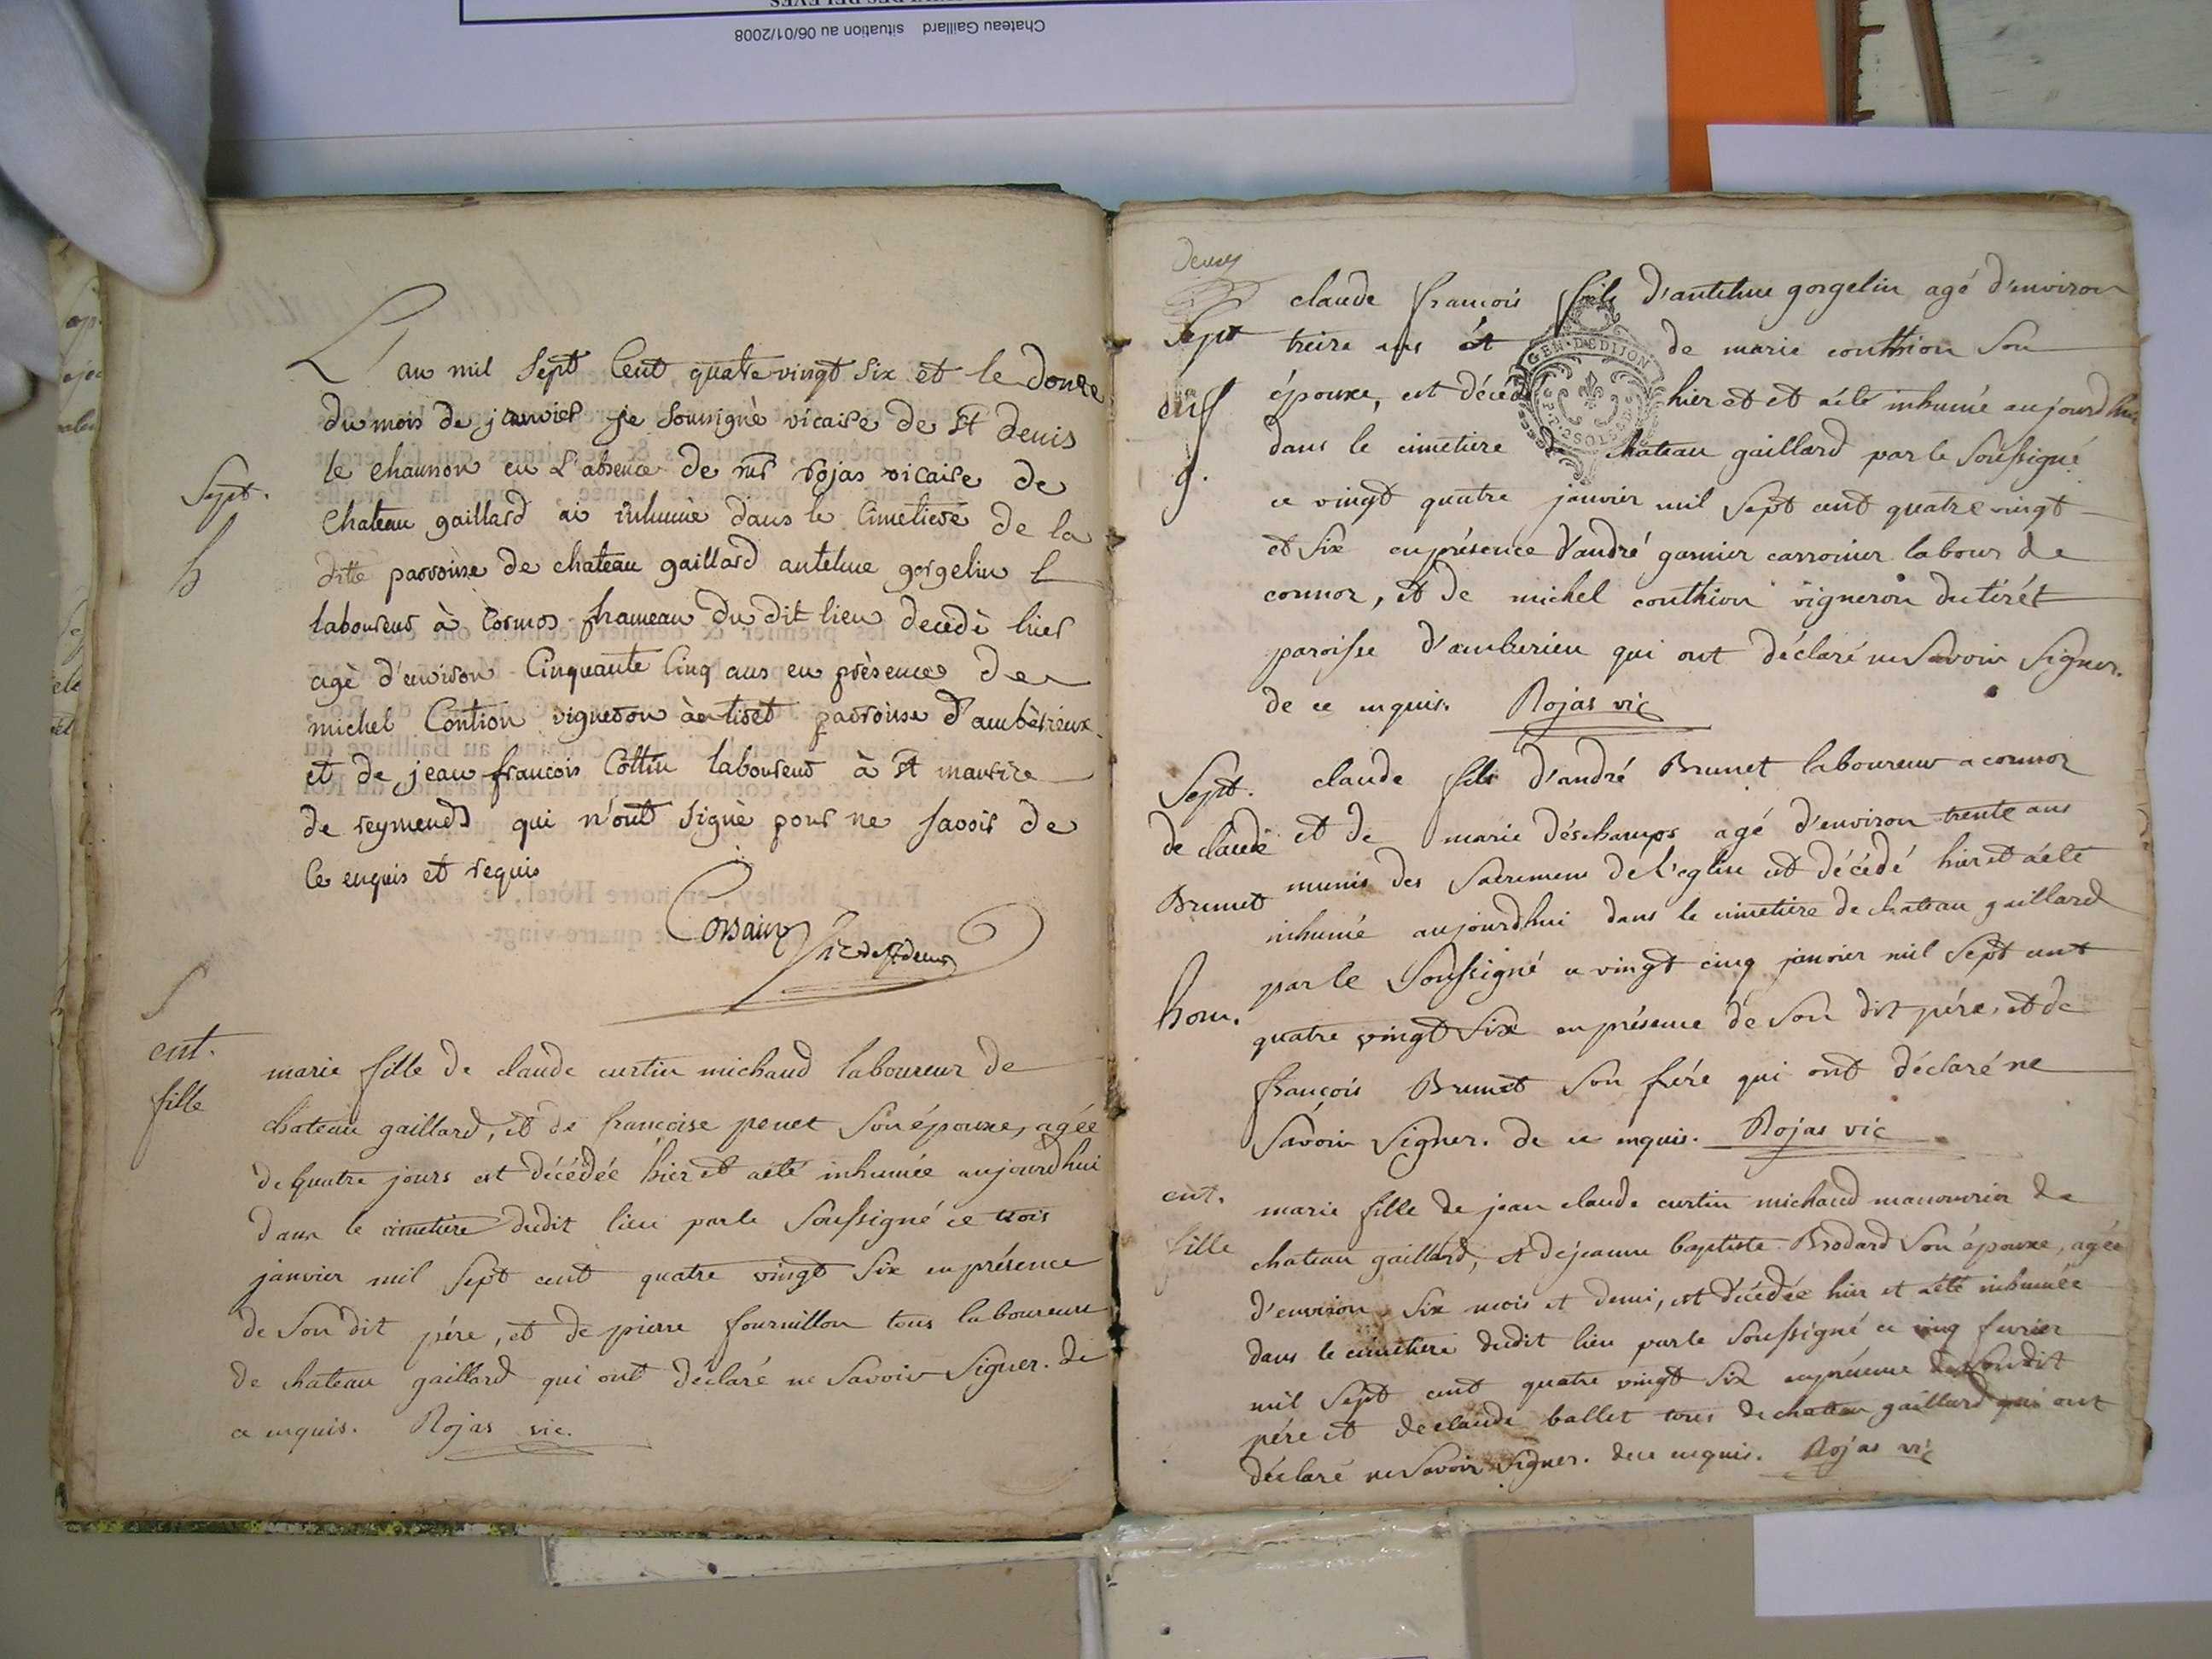 Chateau Gaillard situation au 06/01/2008
L'an mil sept Cent quatre vingt six et le douze
du mois de janvier je soussigné vicaire de St denis
le chausson en L'absence de mr rojas vicaire de
Sept.
chateau gaillard ai inhumé dans le Cimetiere de la
h
ditte parroisse de chateau gaillard antelme gorgelin
laboureur à cormoz hameau du dit lieu decedè hier
agè d'environ Cinquante Cinq ans en prèsence de
michel Contion vigneron à tiret parroisse d'ambèrieux
et de jean francois Cottin laboureur à St maurice
de reymend qui n'ont signè pour ne savoir de
Ce enquis et requis
Corsain Vic de St denis
S
ent.
fille
marie fille de claude curtin michaud laboureur de
chateau gaillard, et de francoise penet son épouse, agée
de quatre jours est décédée hier et aété inhumée aujourdhui
dans le cimetière dudit lieu parle soussigné ce trois
janvier mil sept cent quatre vingt six en présence
de son dit pére, et de pierre fournillon tous laboureurs
de chateau gaillard qui ont déclaré ne savoir signer. de
ce enquis. Rojas vic.
deux
Sept
claude francois fils d'antelme gorgelin agé d'environ
treize ans et de marie conthion son
épouse, est décédé hier et et aété inhumé aujourdhui
dans le cimetière de chateau gaillard par le soussigné
g.
ce vingt quatre janvier mil sept cent quatre vingt
et six en présence d'andré garnier labour de
connor, et de michel conthion vigneron du tirét
paroisse d'amberieu qui ont déclaré ne savoir signer.
de ce enquis. Rojas vic
GEN·DEDIJON
Sept.
de claude
Brunet
hom.
claude fils d'andré Brunet laboureur a connor
et de marie déschamps agé d'environ trente ans
munis des sacremens de l'eglise est décédé hier et aété
inhumé aujourdhui dans le cimetière de chateau gaillard
par le soussigné ce vingt cinq janvier mil sept cent
quatre vingt six en présence de son dit pére, et de
françois Brunet son frére qui ont déclaré ne
savoir signer. de ce enquis. Rojas vic
ent.
fille
marie fille de jean claude curtin michaud manouvrier de
chateau gaillard, et de jeanne baptiste Brodard son épouse, agée
d'environ six mois et demi, est décédée hier et aété inhumée
dans le cimetière dudit lieu parle soussigné ce cinq fevrier
mil sept cent quatre vingt six en présence de son dit
pére et de claude ballet tous de chateau gaillard qui ont
déclaré ne savoir signer. de ce enquis. Rojas vic